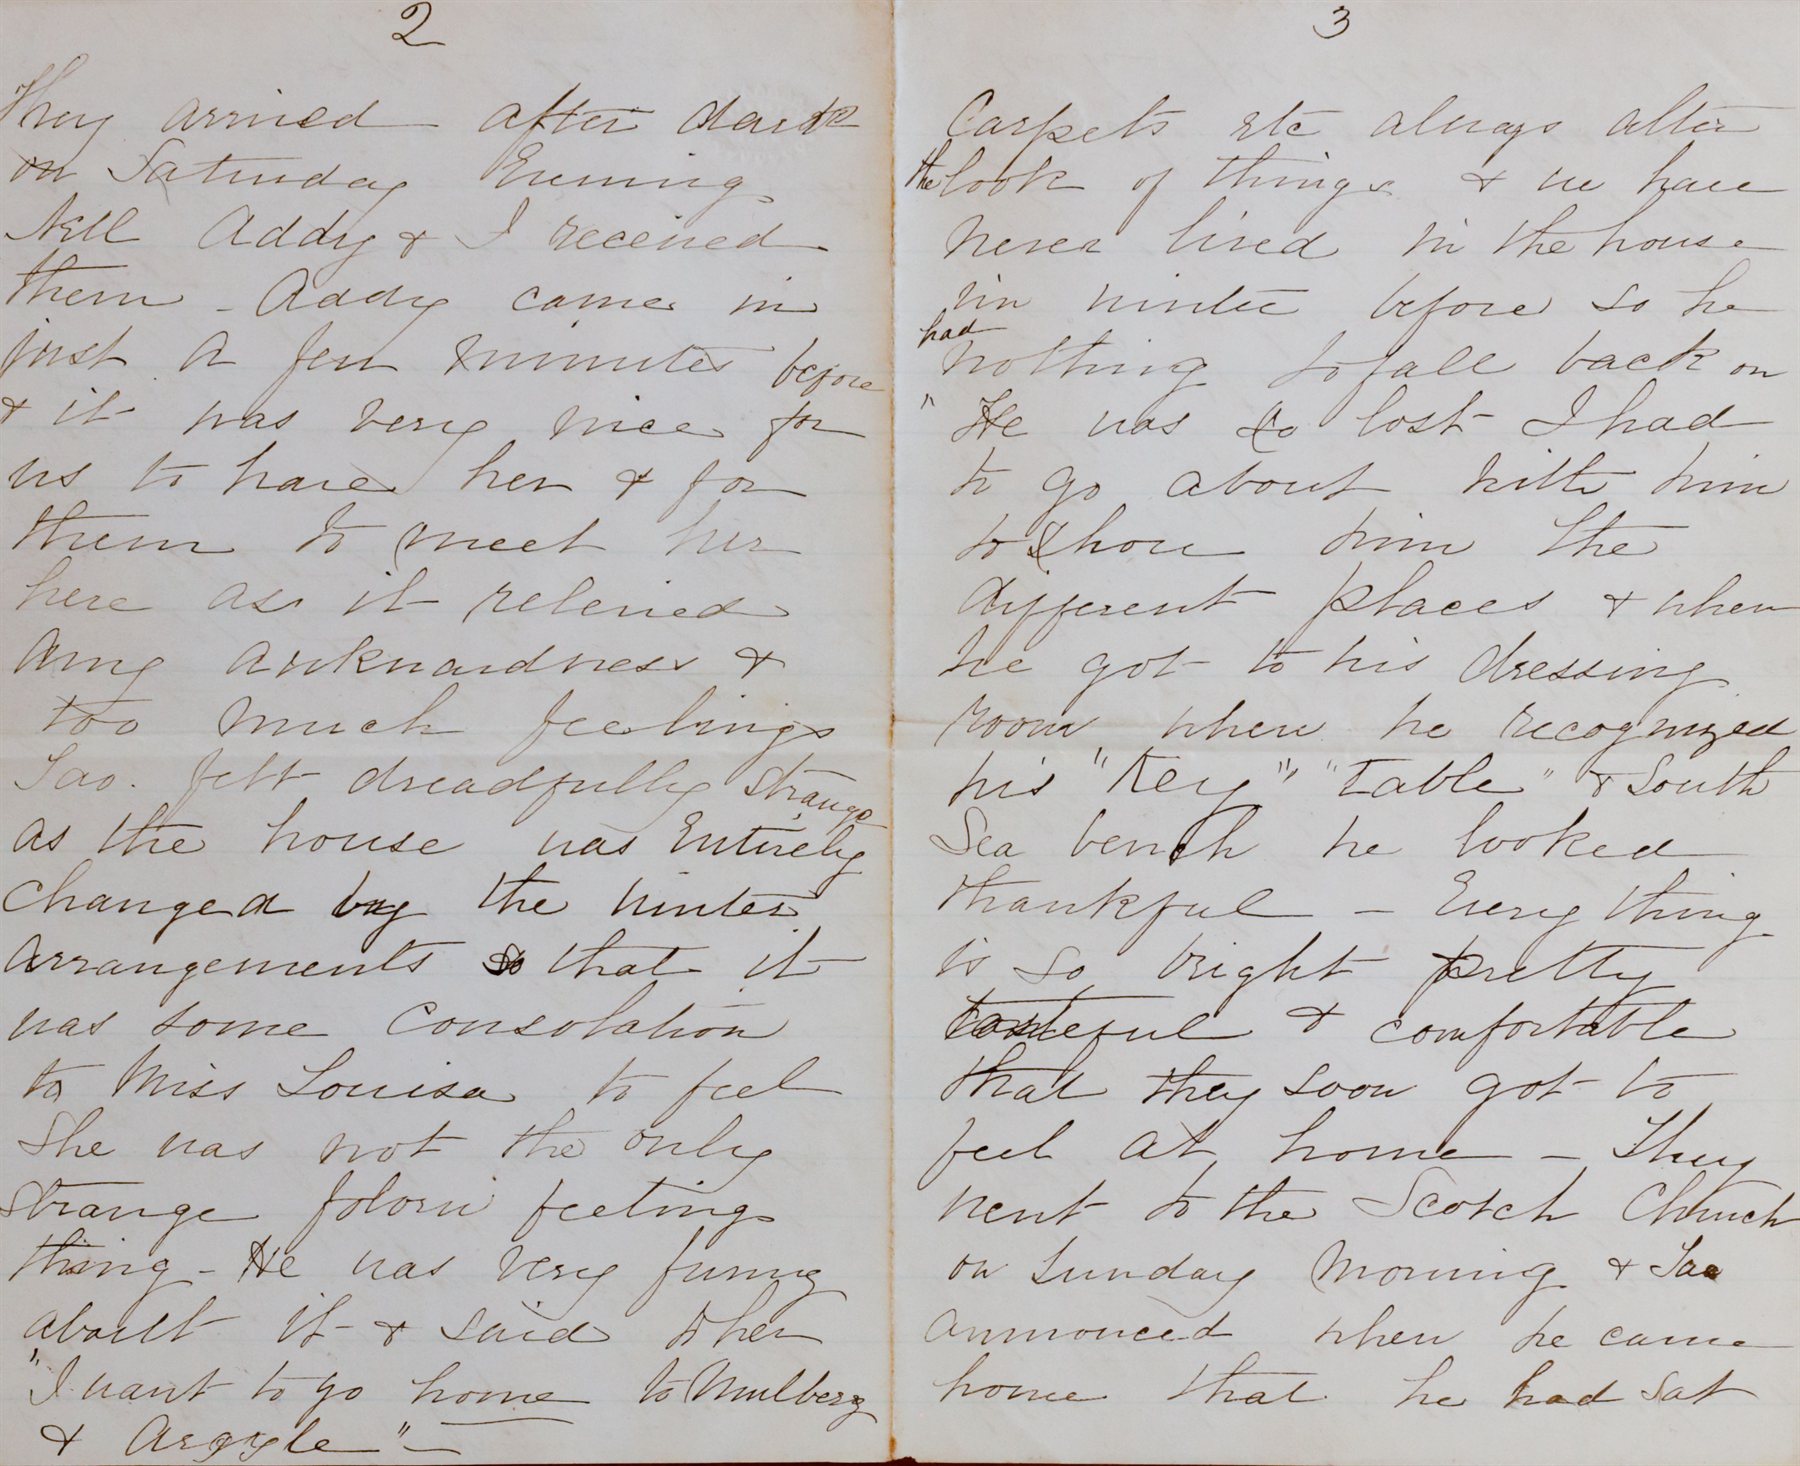 2
They arrived after dark
on Saturday Evening
Nell Addy & I received
them - Addy came in
just a few minutes before
& it was very nice for
us to have her & for
them to meet her
here as it relieved
any awkwardness &
too much feelings
Jao. felt dreadfully strange
as the house was Entirely
changed by the winter
arrangements so that it
was some consolation
to Miss Louisa to feel
She was not the only
strange folorn feeling
thing - He was very funny
about it & said to her
"I want to go home to Mulberry
& Argyle" -
3
Carpets etc always alter
the look of things & we have
never lived in the house
in winter before so he
had
nothing to fall back on
"He was so lost I had
to go about with him
to show him the
different places & when
he got to his dressing
room where he recognized
his "Key" "table" & South
Sea bench he looked
thankful - Every thing
is so bright pretty
tasteful & comfortable
that they soon got to
feel at home - They
went to the Scotch Church
on Sunday Morning & Jao
announced when he came
home that he had sat